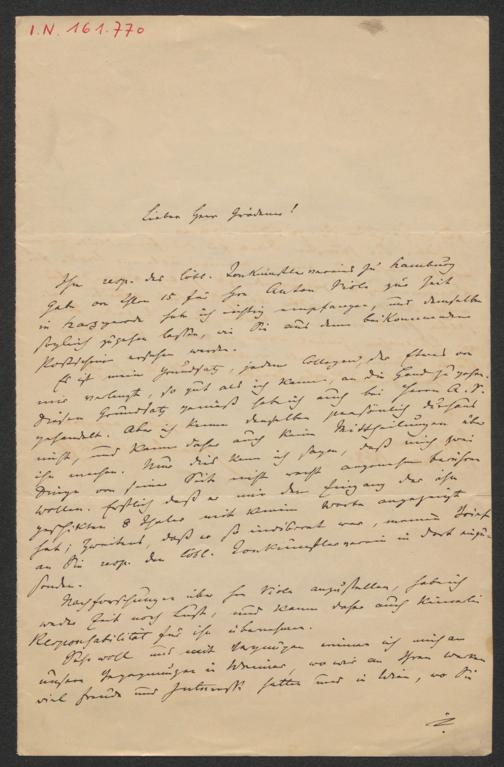 I.N. 161.770
Lieber Herr Grädener!
Ihre resp. des löbl. Tonkünstlervereins zu Hamburg
Gabe von Thlrn 15 für Hrn Anton Viole zur Zeit
in habe ich richtig empfangen, und demselben
sogleich zugehen lassen, wie Sie aus dem beikommenden
Postschein ersehen werden.
Es ist mein Grundsatz, jedem Collegen, der Etwas von
mir verlangt, so gut als ich kann, an die Hand zu gehen.
Diesem Grundsatz gemäß habe ich auch bei Herrn A. V.
gehandelt. Aber ich kenne denselben persönlich durchaus
nicht, und kann daher auch keine Mittheilungen über
ihn machen. Nur dies kann ich sagen, daß mich zwei
Dinge von seiner Seite nicht recht angenehm berühren
wollen. Erstlich daß er mir den Eingang der ihm
geschickten 8 Thaler mit keinem Worte angezeigt
hat; zweitens, daß er so indiscret war, meinen Brief
an Sie resp. den löbl. Tonkünstlerverein in dort
senden.
Nachforschungen über Hrn Viole anzustellen, habe ich
weder Zeit noch Lust, und kann daher auch keinerlei
Responsabilität für ihn übernehmen.
Sehr wohl und mit Vergnügen erinnere ich mich an
unsere Begegnungen in Weimar, wo wir an Ihren Werken
viel Freude und Interesse hatten und in Wien, wo Sie